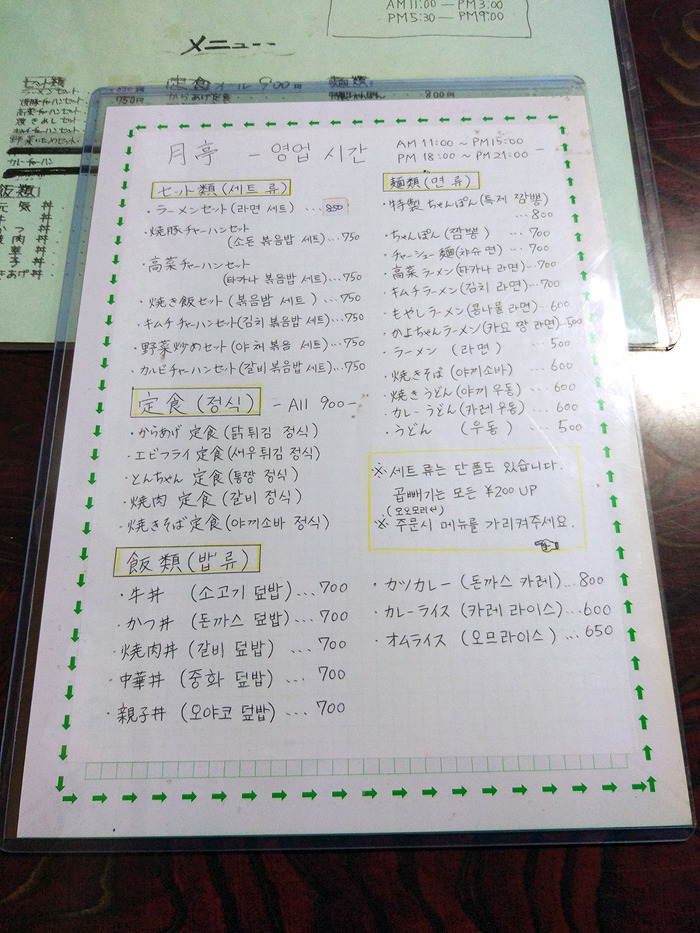 AM 11:00 — PM 3:00
PM 5:30 — PM 9:00
メニュー
セット類
定食オール900円
麺類
ラーメンセット
750円
からあげ定食
800円
月亭 - 영업 시간
AM 11:00 ~ PM 15:00
PM 18:00 ~ PM 21:00 -
セット類 (세트 류)
・ラーメンセット (라면 세트) ...850
・焼豚チャーハンセット
(소돈 볶음밥 세트)...750
・高菜チャーハンセット
(타카나 볶음밥 세트)...750
・焼き飯セット (볶음밥 세트)...750
・キムチチャーハンセット(김치 볶음밥 세트)...750
・野菜炒めセット (야채 볶음 세트)...750
・カルビチャーハンセット(갈비 볶음밥 세트)...750
麺類 (면 류)
・特製ちゃんぽん(특제 짬뽕)
...800
・ちゃんぽん (짬뽕) ...700
・チャーシュー麺(챠슈 면) ...700
・高菜ラーメン(타카나 라면)...700
・キムチラーメン(김치 라면)...700
・もやしラーメン(콩나물 라면)...600
・かよちゃんラーメン(카요 짱 라면)...500
・ラーメン (라면) ... 500
・焼きそば (야끼소바) ...600
・焼きうどん(야끼 우동) ...600
・カレーうどん(카레 우동) ...600
・うどん (우동) ... 500
定食 (정식) - All 900 -
・からあげ 定食 (닭튀김 정식)
・エビフライ 定食(새우튀김 정식)
・とんちゃん 定食(통짱 정식)
・焼肉 定食 (갈비 정식)
・焼きそば定食 (야끼소바 정식)
※ 세트 류는 단품도 있습니다.
곱빼기는 모든 ¥200 UP
(오오모리서)
※ 주문시 메뉴를 가리켜주세요.
飯類 (밥 류)
・牛丼 (소고기 덮밥)...700
・かつ丼 (돈까스 덮밥)...700
・焼肉丼 (갈비 덮밥) ...700
・中華丼 (중화 덮밥) ...700
・親子丼 (오야코 덮밥) ...700
・カツカレー (돈까스 카레)...800
・カレーライス (카레 라이스)...600
・オムライス (오므라이스) ...650